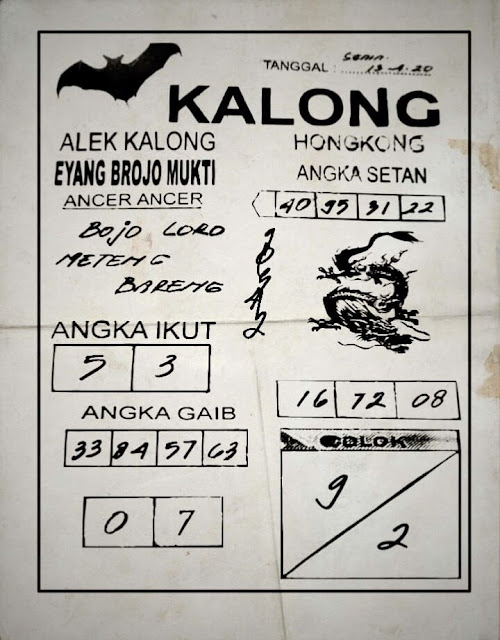 TANGGAL : SENIN. 13-4-20
KALONG
ALEK KALONG
HONGKONG
EYANG BROJO MUKTI
ANGKA SETAN
ANCER ANCER
40 95 31 22
BOJO LORO
METENG
BARENG
ANGKA IKUT
5 3
16 72 08
ANGKA GAIB
33 84 57 63
COLOK
9
2
0 7